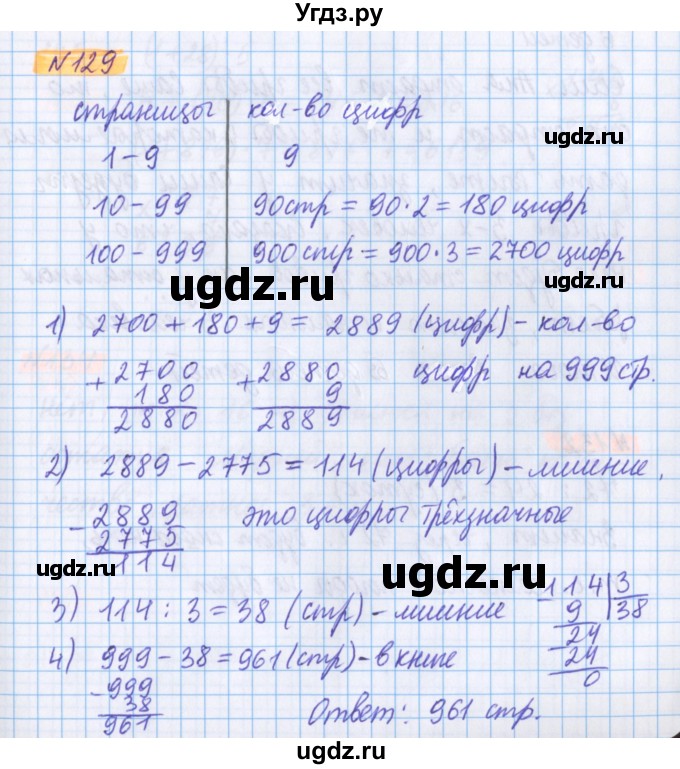 Угдз.ру
№129
страницы | кол-во цифр
1-9 9
ugdz.ru
10-99 90стр = 90·2 = 180 цифр
100-999 900 стр = 900·3 = 2700 цифр
ugdz.ru
1) 2700+180+9 = 2889 (цифр) - кол-во
цифр на 999 стр.
+2700 +2880
180 9
2880 2889
ugdz.ru ugdz.ru
2) 2889-2775=114 (цифры) - лишние,
это цифры трёхзначные
-2889
2775
114
ugdz.ru ugdz.ru
3) 114 : 3 = 38 (стр) - лишние
-114 | 3
9 | 38
-24
24
0
4) 999-38=961(стр)- в книге
-999
38
961
ugdz.ru
Ответ: 961 стр.
ugdz.ru ugdz.ru